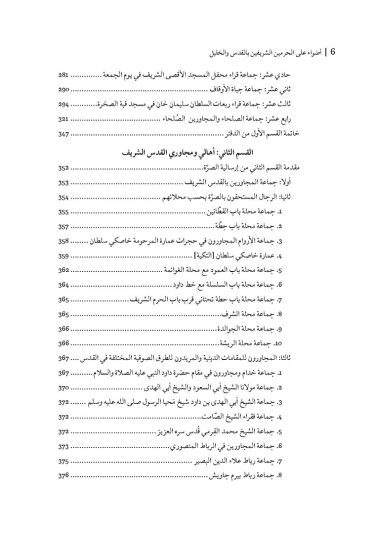 6 | أضواء على الحرمين الشريفين بالقدس والخليل
حادي عشر: جماعة قراء محفل المسجد الأقصى الشريف في يوم الجمعة .............. 281
ثاني عشر: جماعة جباة الأوقاف .............. 290
ثالث عشر: جماعة قراء ربعات السلطان سليمان خان في مسجد قبة الصخرة .............. 294
رابع عشر: جماعة الصلحاء والمجاورين الصُّلحاء .............. 321
خاتمة القسم الأول من الدفتر .............. 347
القسم الثاني: أهالي ومجاوري القدس الشريف
مقدمة القسم الثاني من إرسالية الصرّة .............. 352
أولاً: جماعة المجاورين بالقدس الشريف .............. 353
ثانيا: الرجال المستحقون بالصرّة بحسب محلاتهم .............. 354
1. جماعة محلة باب القطّانين .............. 355
2. جماعة محلة باب حِطّة .............. 357
3. جماعة الأروام المجاورون في حجرات عمارة المرحومة خاصكي سلطان ........ 358
4. عمارة خاصكي سلطان [التكية] .............. 359
5. جماعة محلة باب العمود مع محلة الغوانمة .............. 362
6. جماعة محلة باب السلسلة مع خط داود .............. 364
7. جماعة محلة باب حطة تحتاني قرب باب الحرم الشريف .............. 365
8. جماعة محلة الشرف .............. 365
9. جماعة محلة الجوالدة .............. 366
10. جماعة محلة الريشة .............. 366
ثالثا: المجاورون للمقامات الدينية والمريدون للطرق الصوفية المختلفة في القدس .... 367
1. جماعة خدام ومجاورون في مقام حضرة داود النبي عليه الصلاة والسلام .......... 367
2. جماعة مولانا الشيخ أبي السعود والشيخ أبي الهدى .............. 370
3. جماعة الشيخ أبي الهدى بن داود شيخ مَحيا الرسول صلى الله عليه وسلم ...... 372
4. جماعة فقراء الشيخ الصّامت .............. 372
5. جماعة الشيخ محمد القرمي قُدس سره العزيز .............. 372
6. جماعة المجاورين في الرباط المنصوري .............. 373
7. جماعة رباط علاء الدين البصير .............. 375
8. جماعة رباط بيرم جاويش .............. 376